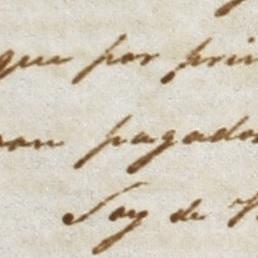 que por pri
ran pagados
Soy de V